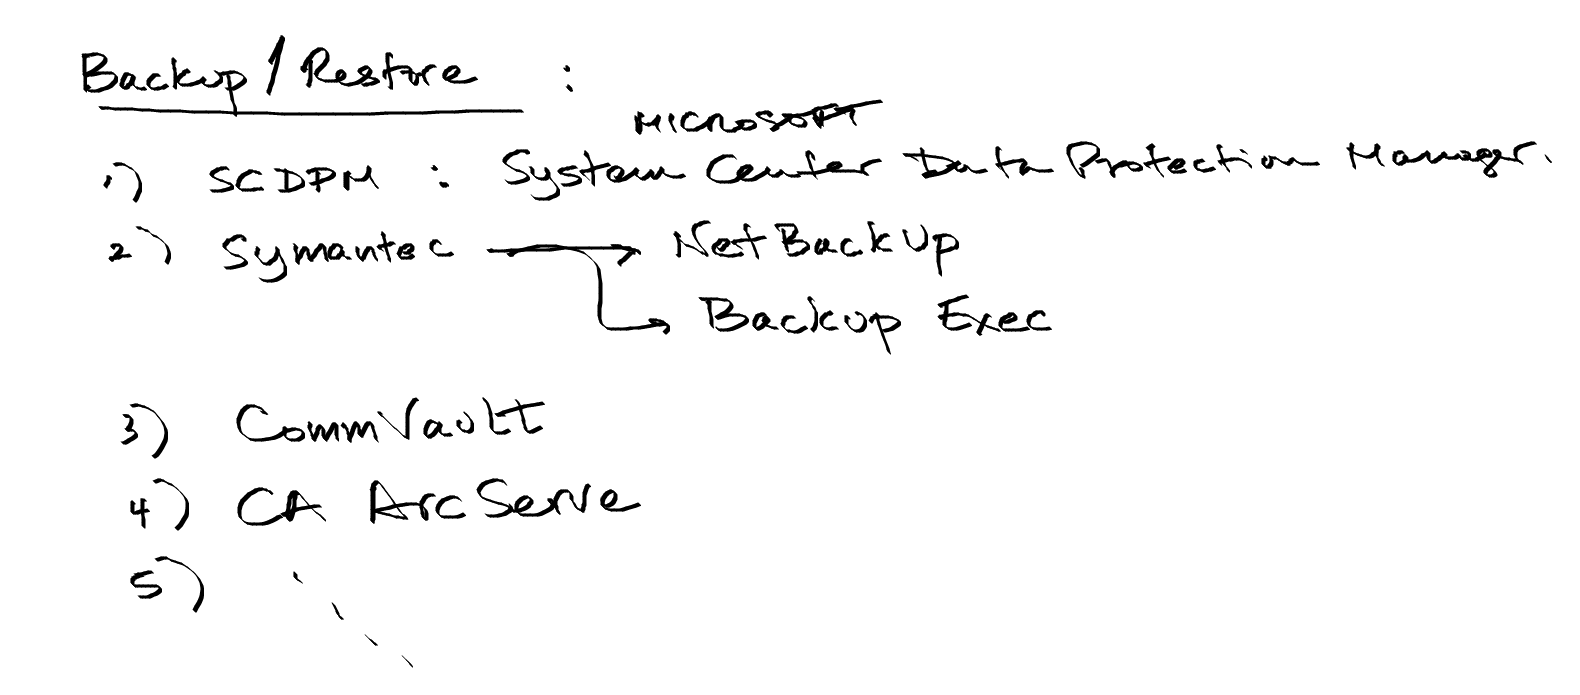 Backup / Restore :
MICROSOFT
1) SCDPM : System Center Data Protection Manager.
2) Symantec → NetBackUp
→ Backup Exec
3) CommVault
4) CA ArcServe
5)